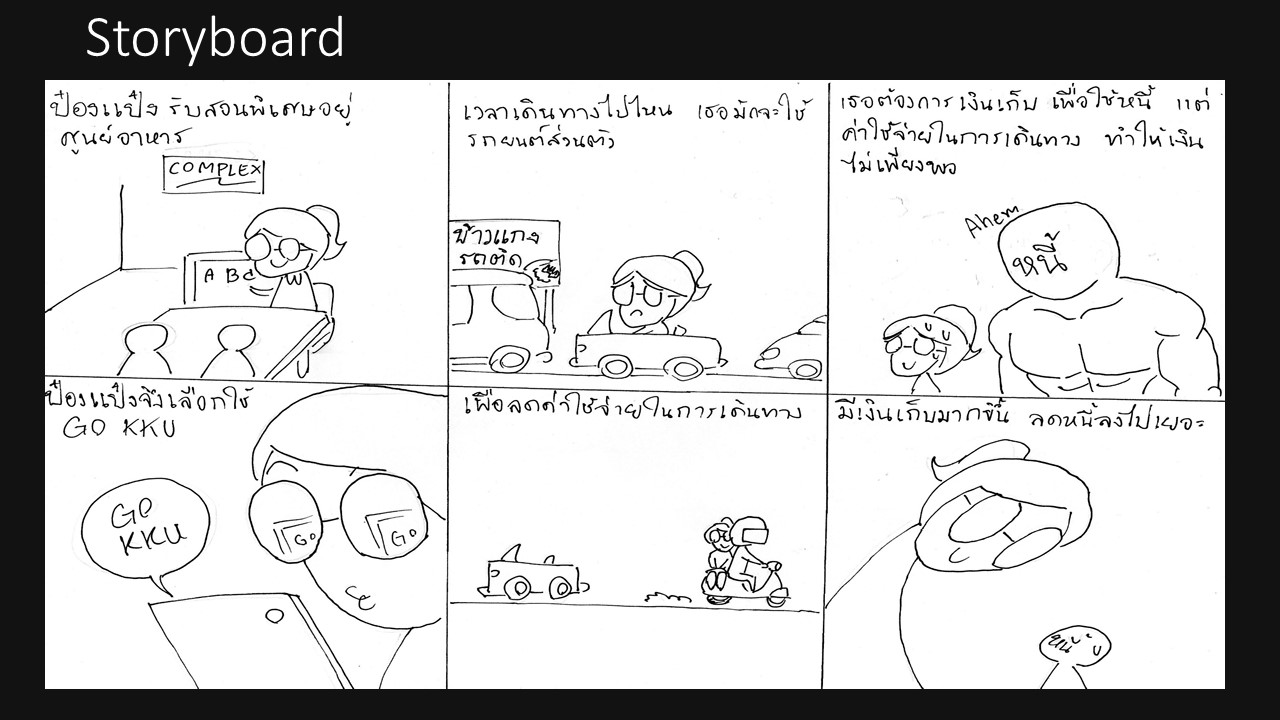 Storyboard
ป๋องแป๋ง รับสอนพิเศษอยู่
ศูนย์อาหาร
COMPLEX
A B C
เวลาเดินทางไปไหน เธอมักจะใช้
รถยนต์ส่วนตัว
ข้าวแกง
รถติด
เธอต้องการเงินเก็บ เพื่อใช้หนี้ แต่
ค่าใช้จ่ายในการเดินทาง ทำให้เงิน
ไม่เพียงพอ
Ahem
หนี้
ป๋องแป๋งจึงเลือกใช้
GO KKU
GO
KKU
GO
GO
เพื่อลดค่าใช้จ่ายในการเดินทาง
มีเงินเก็บมากขึ้น ลดหนี้ลงไปเยอะ
หนี้